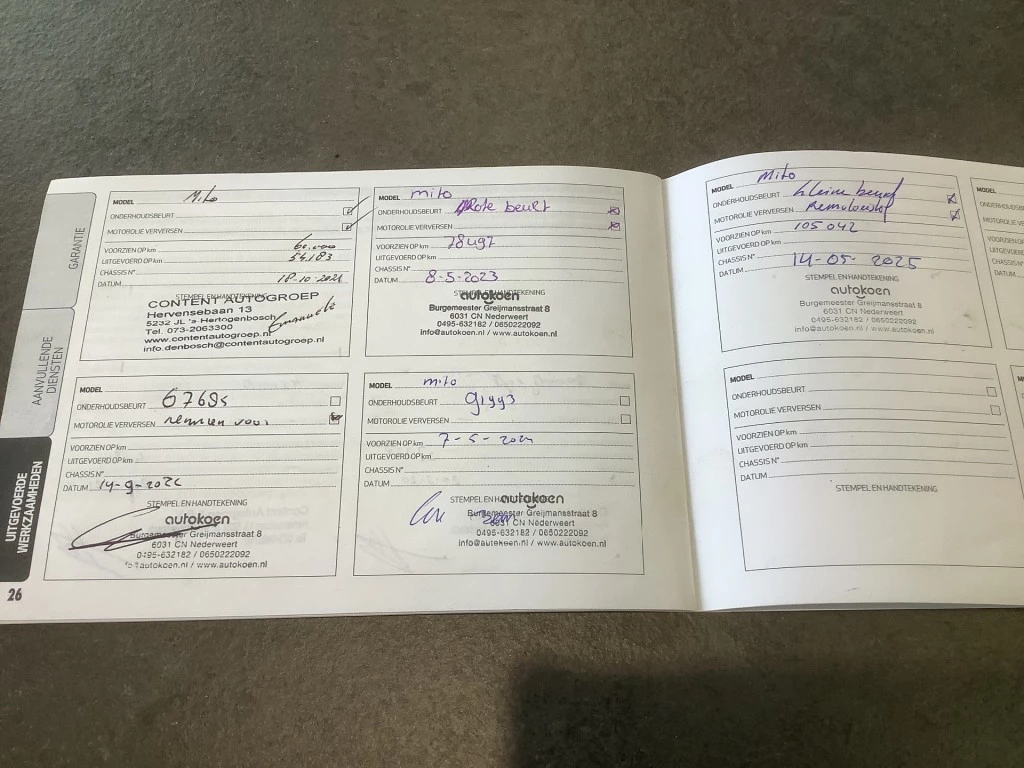 GARANTIE
AANVULLENDE
DIENSTEN
UITGEVOERDE
WERKZAAMHEDEN
26
MODEL Mito
ONDERHOUDSBEURT
MOTOROLIE VERVERSEN
VOORZIEN OP km 60.000
UITGEVOERD OP km 54183
CHASSIS N°
DATUM 18-10-2021
STEMPEL EN HANDTEKENING
CONTENT AUTOGROEP
Hervensebaan 13
5232 JL 's Hertogenbosch
Tel. 073-2063300
www.contentautogroep.nl
info.denbosch@contentautogroep.nl
MODEL
ONDERHOUDSBEURT
MOTOROLIE VERVERSEN remmen voor
VOORZIEN OP km
UITGEVOERD OP km
CHASSIS N°
DATUM
STEMPEL EN HANDTEKENING
autokoen
Burgemeester Greijmansstraat 8
6031 CN Nederweert
0495-632182 / 0650222092
info@autokoen.nl / www.autokoen.nl
MODEL mito
ONDERHOUDSBEURT grote beurt
MOTOROLIE VERVERSEN
VOORZIEN OP km 78497
UITGEVOERD OP km
CHASSIS N°
DATUM 8-5-2023
STEMPEL EN HANDTEKENING
autokoen
Burgemeester Greijmansstraat 8
6031 CN Nederweert
0495-632182 / 0650222092
info@autokoen.nl / www.autokoen.nl
MODEL mito
ONDERHOUDSBEURT
MOTOROLIE VERVERSEN
VOORZIEN OP km 7-5-2024
UITGEVOERD OP km
CHASSIS N°
DATUM
STEMPEL EN HANDTEKENING
autokoen
Burgemeester Greijmansstraat 8
6031 CN Nederweert
0495-632182 / 0650222092
info@autokoen.nl / www.autokoen.nl
MODEL Mito
ONDERHOUDSBEURT kleine beurt
MOTOROLIE VERVERSEN
VOORZIEN OP km 105042
UITGEVOERD OP km
CHASSIS N°
DATUM 14-05-2025
STEMPEL EN HANDTEKENING
autokoen
Burgemeester Greijmansstraat 8
6031 CN Nederweert
0495-632182 / 0650222092
info@autokoen.nl / www.autokoen.nl
MODEL
ONDERHOUDSBEURT
MOTOROLIE VERVERSEN
VOORZIEN OP km
UITGEVOERD OP km
CHASSIS N°
DATUM
STEMPEL EN HANDTEKENING